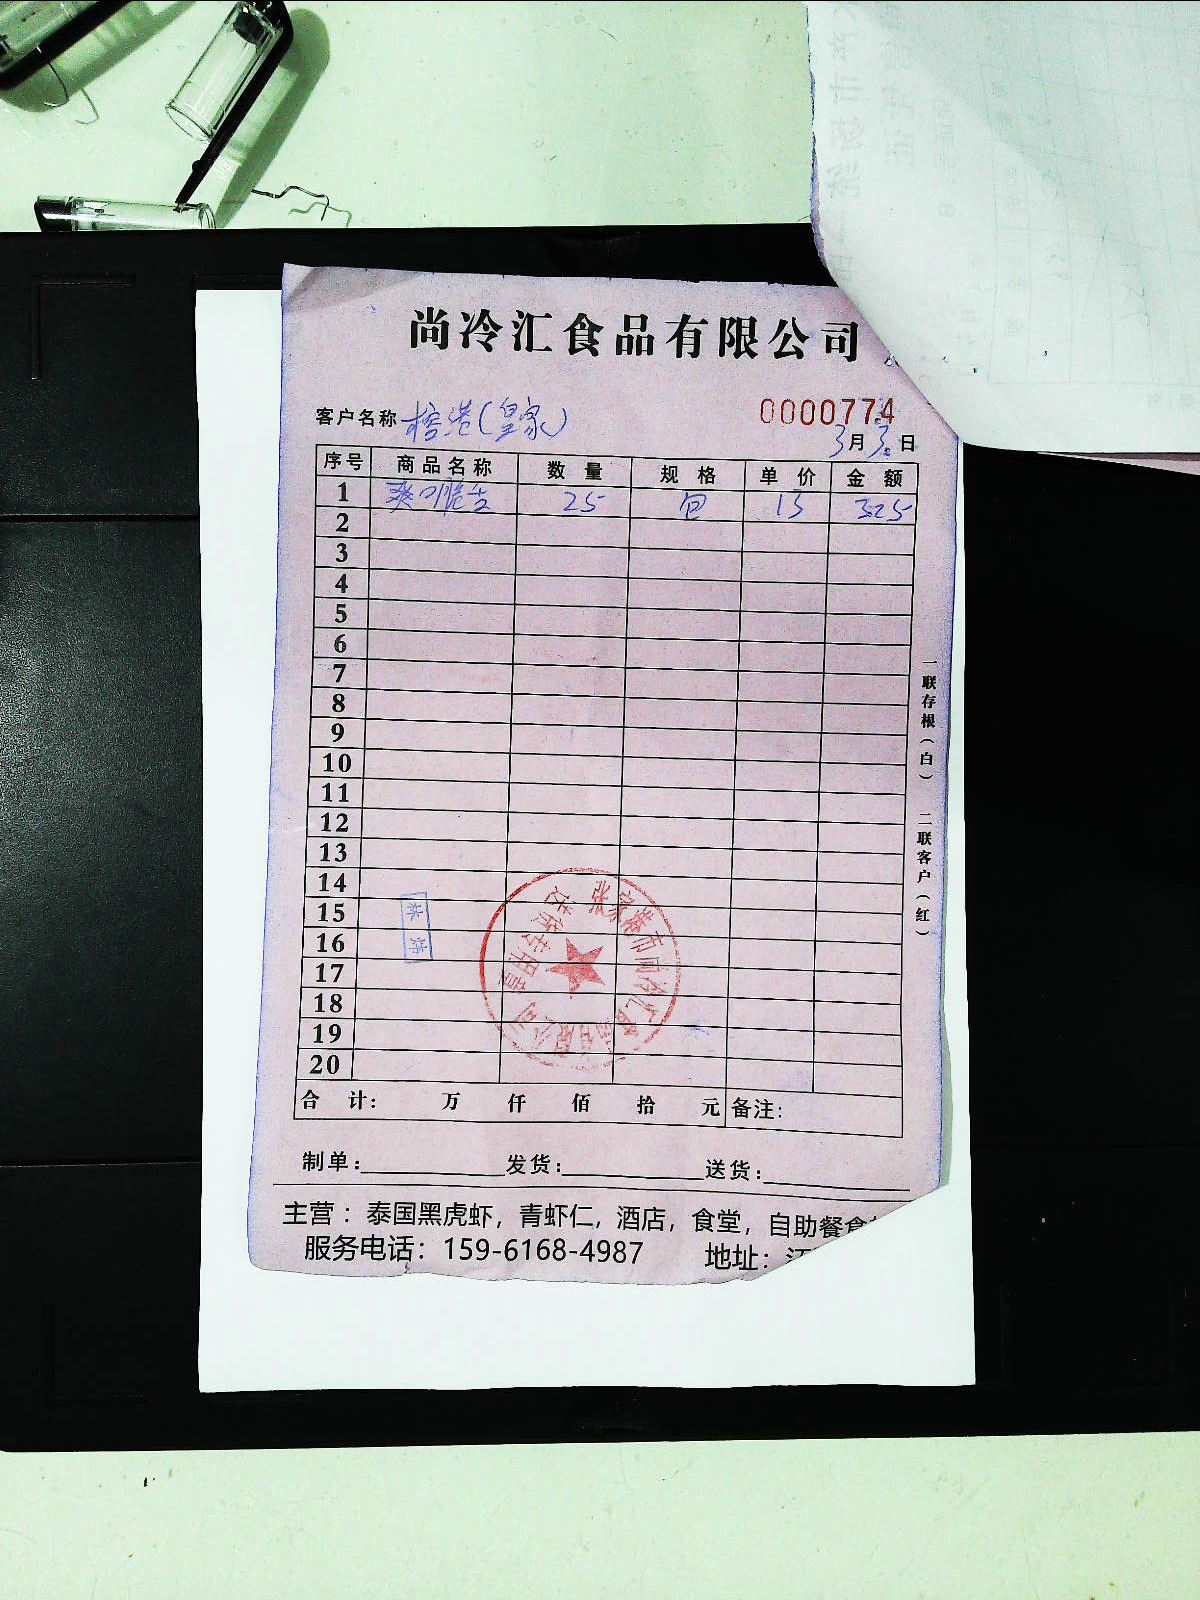 尚冷汇食品有限公司
客户名称 榕港(皇家)
0000774
3月3日
序号 商品名称 数量 规格 单价 金额
1 爽口脆舌 25 包 13 325
2
3
4
5
6
7
8
9
10
11
12
13
14
15
16
17
18
19
20
合计： 万 仟 佰 拾 元 备注：
制单： 发货： 送货：
主营：泰国黑虎虾，青虾仁，酒店，食堂，自助餐食
服务电话：159-6168-4987 地址：江
一联存根（白） 二联客户（红）
张家港市尚冷汇食品有限公司
送货专用章